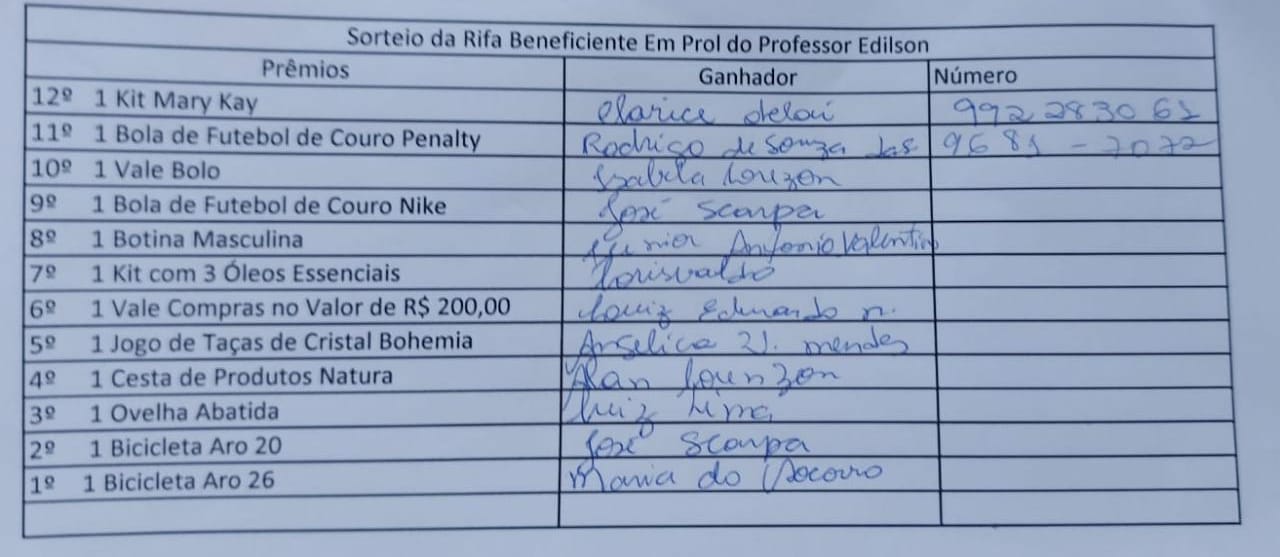 Sorteio da Rifa Beneficiente Em Prol do Professor Edilson
Prêmios Ganhador Número
12º 1 Kit Mary Kay Clarice 992 283061
11º 1 Bola de Futebol de Couro Penalty Rodrigo de Souza das 9681-7072
10º 1 Vale Bolo Izabela Lourzon
9º 1 Bola de Futebol de Couro Nike José Scarpa
8º 1 Botina Masculina Junior Antonio Valentin
7º 1 Kit com 3 Óleos Essenciais Lourisvaldo
6º 1 Vale Compras no Valor de R$ 200,00 Louiz Eduardo n.
5º 1 Jogo de Taças de Cristal Bohemia Angelica mendes
4º 1 Cesta de Produtos Natura Alan Lourzon
3º 1 Ovelha Abatida Luiz Lima
2º 1 Bicicleta Aro 20 José Scarpa
1º 1 Bicicleta Aro 26 Maria do Socorro